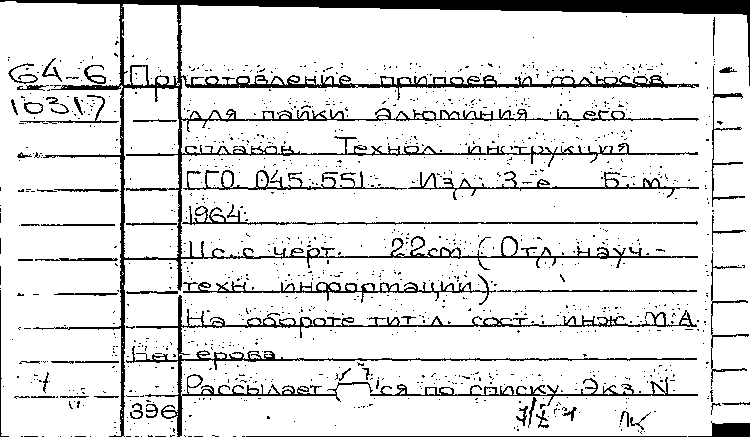 64-6 Приготовление припоев и флюсов
10317 для пайки алюминия и его
сплавов. Технол. инструкция
ГГО.045.551. Изд. 3-е. Б. м.,
1964.
11 с. с черт. 22 cm (Отд. науч.-
техн. информации)
На обороте тит. л. сост. инж. М.А.
Рассылается по списку. Экз. N
396